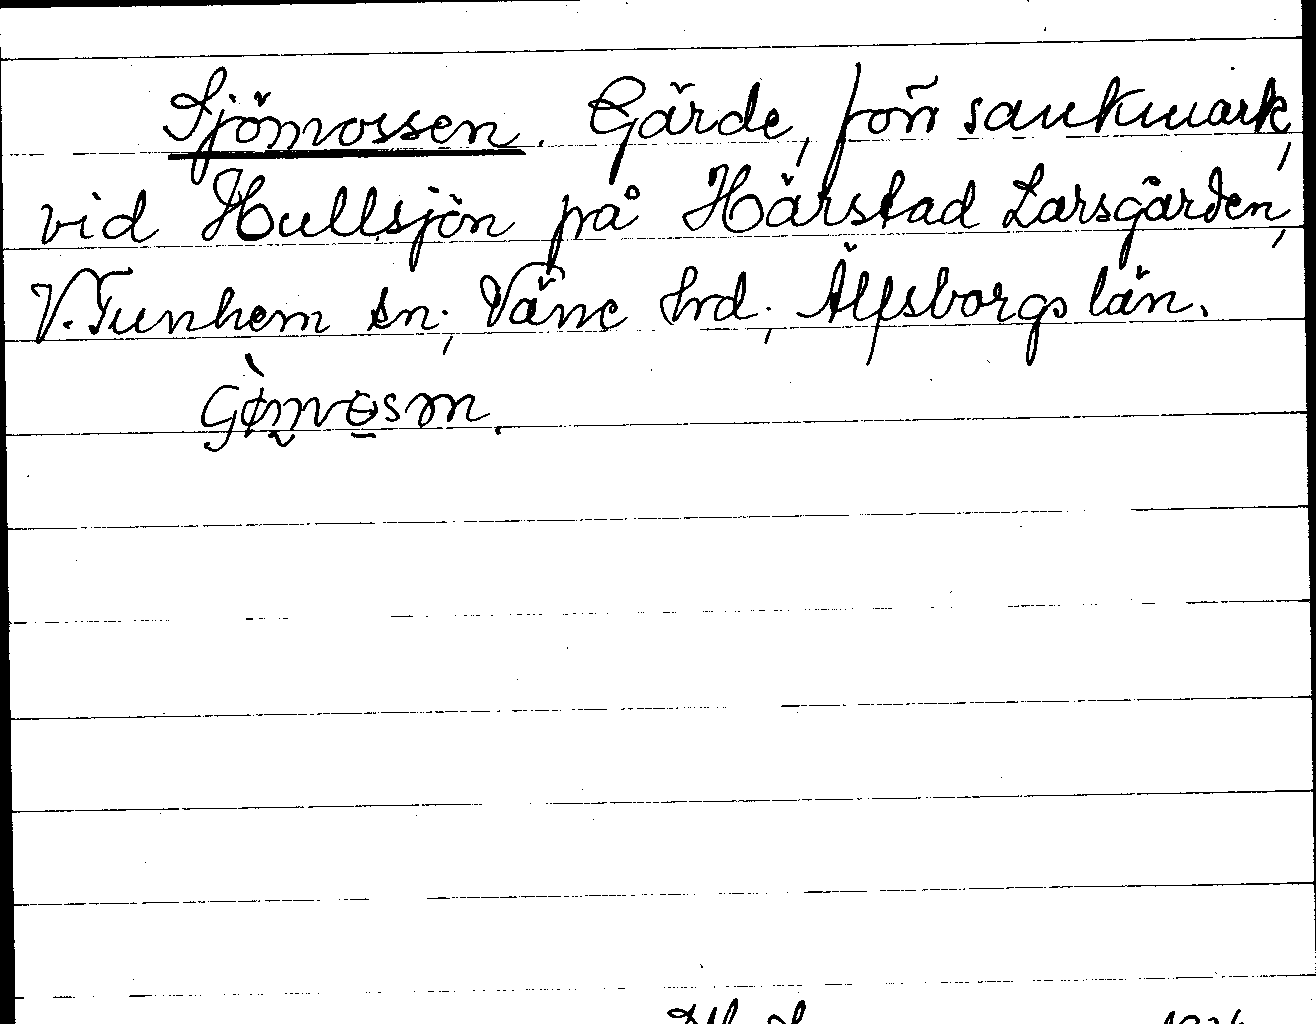 Sjömossen. Gärde, förr sankmark,
vid Hullsjön på Härstad Larsgården,
V. Tunhem sn; Väne hrd; Älfsborgs län.